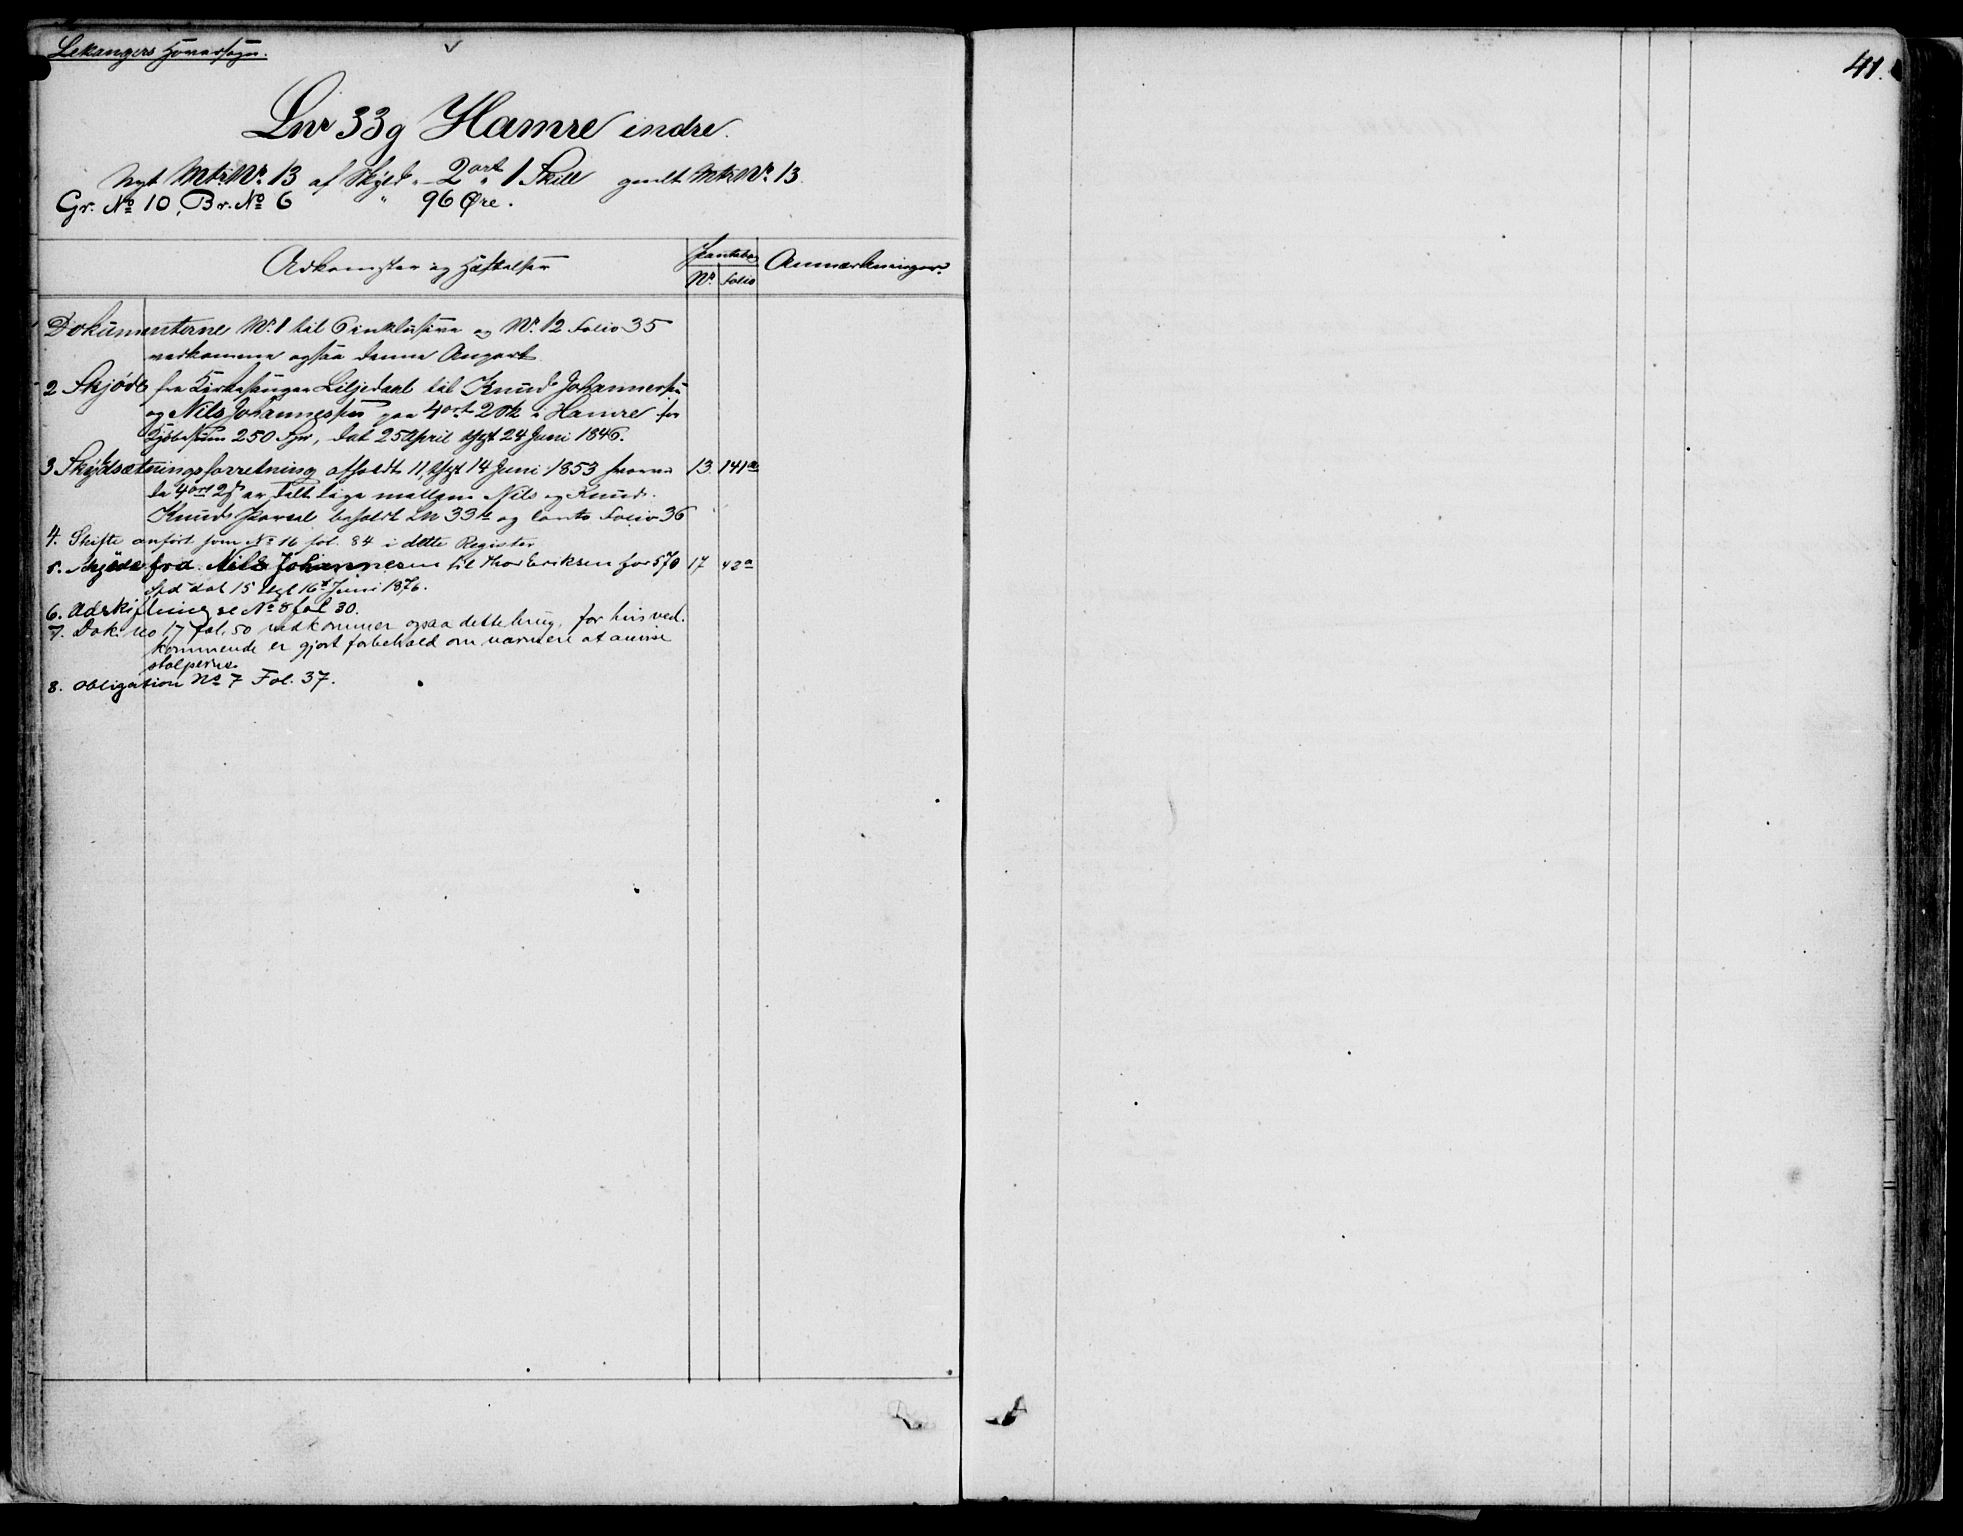 Lekangers Hovedsogn.
41.
Lnr 33g Hamre indre.
Nyt Mtr.Nr. 13 af Skyld " - 2 ort " 1 Skill gamlt Mtr.Nr. 13.
Gr. No 10, Br. No 6 " 96 Øre.
Adkomster og Hæftelser
Pantebog
Nr. Folio
Anmærkninger.
Dokumenterne Nr. 1 til 6 inklusive og Nr. 12 Folio 35
vedkomme ogsaa denne Anpart
2 Skjøde fra Kirkesanger Liljedahl til Knud Johannessen
og Nils Johannessen paa 4 ort 2 sk i Hamre for
Kjøbesum 250 Spd, dat 25 April thgl 24 Juni 1846.
3 Skyldsætningsforretning afholdt 11, thgl 14 Juni 1853 hvorved 13. 141a
de 4 ort 2 s er delt lige mellem Nils og Knud.
Knuds Parsel beholdt Ln 33 og Conto Folio 36
4. Skifte anført som No 16 fol. 84 i dette Register
5. Skjøde fra Nils Johannesen til Thor Eriksen for 570 17 42a
Spd dat 15 thgl 16 Juni 1876.
6. Udskiftning se No 8 fol 30.
7. Dok. no 17 fol. 50 vedkommer ogsaa dette brug, for hvis ved-
kommende er gjort forbehold om nærmere at anvise
stolperne.
8. Obligation No 7 Fol. 37.